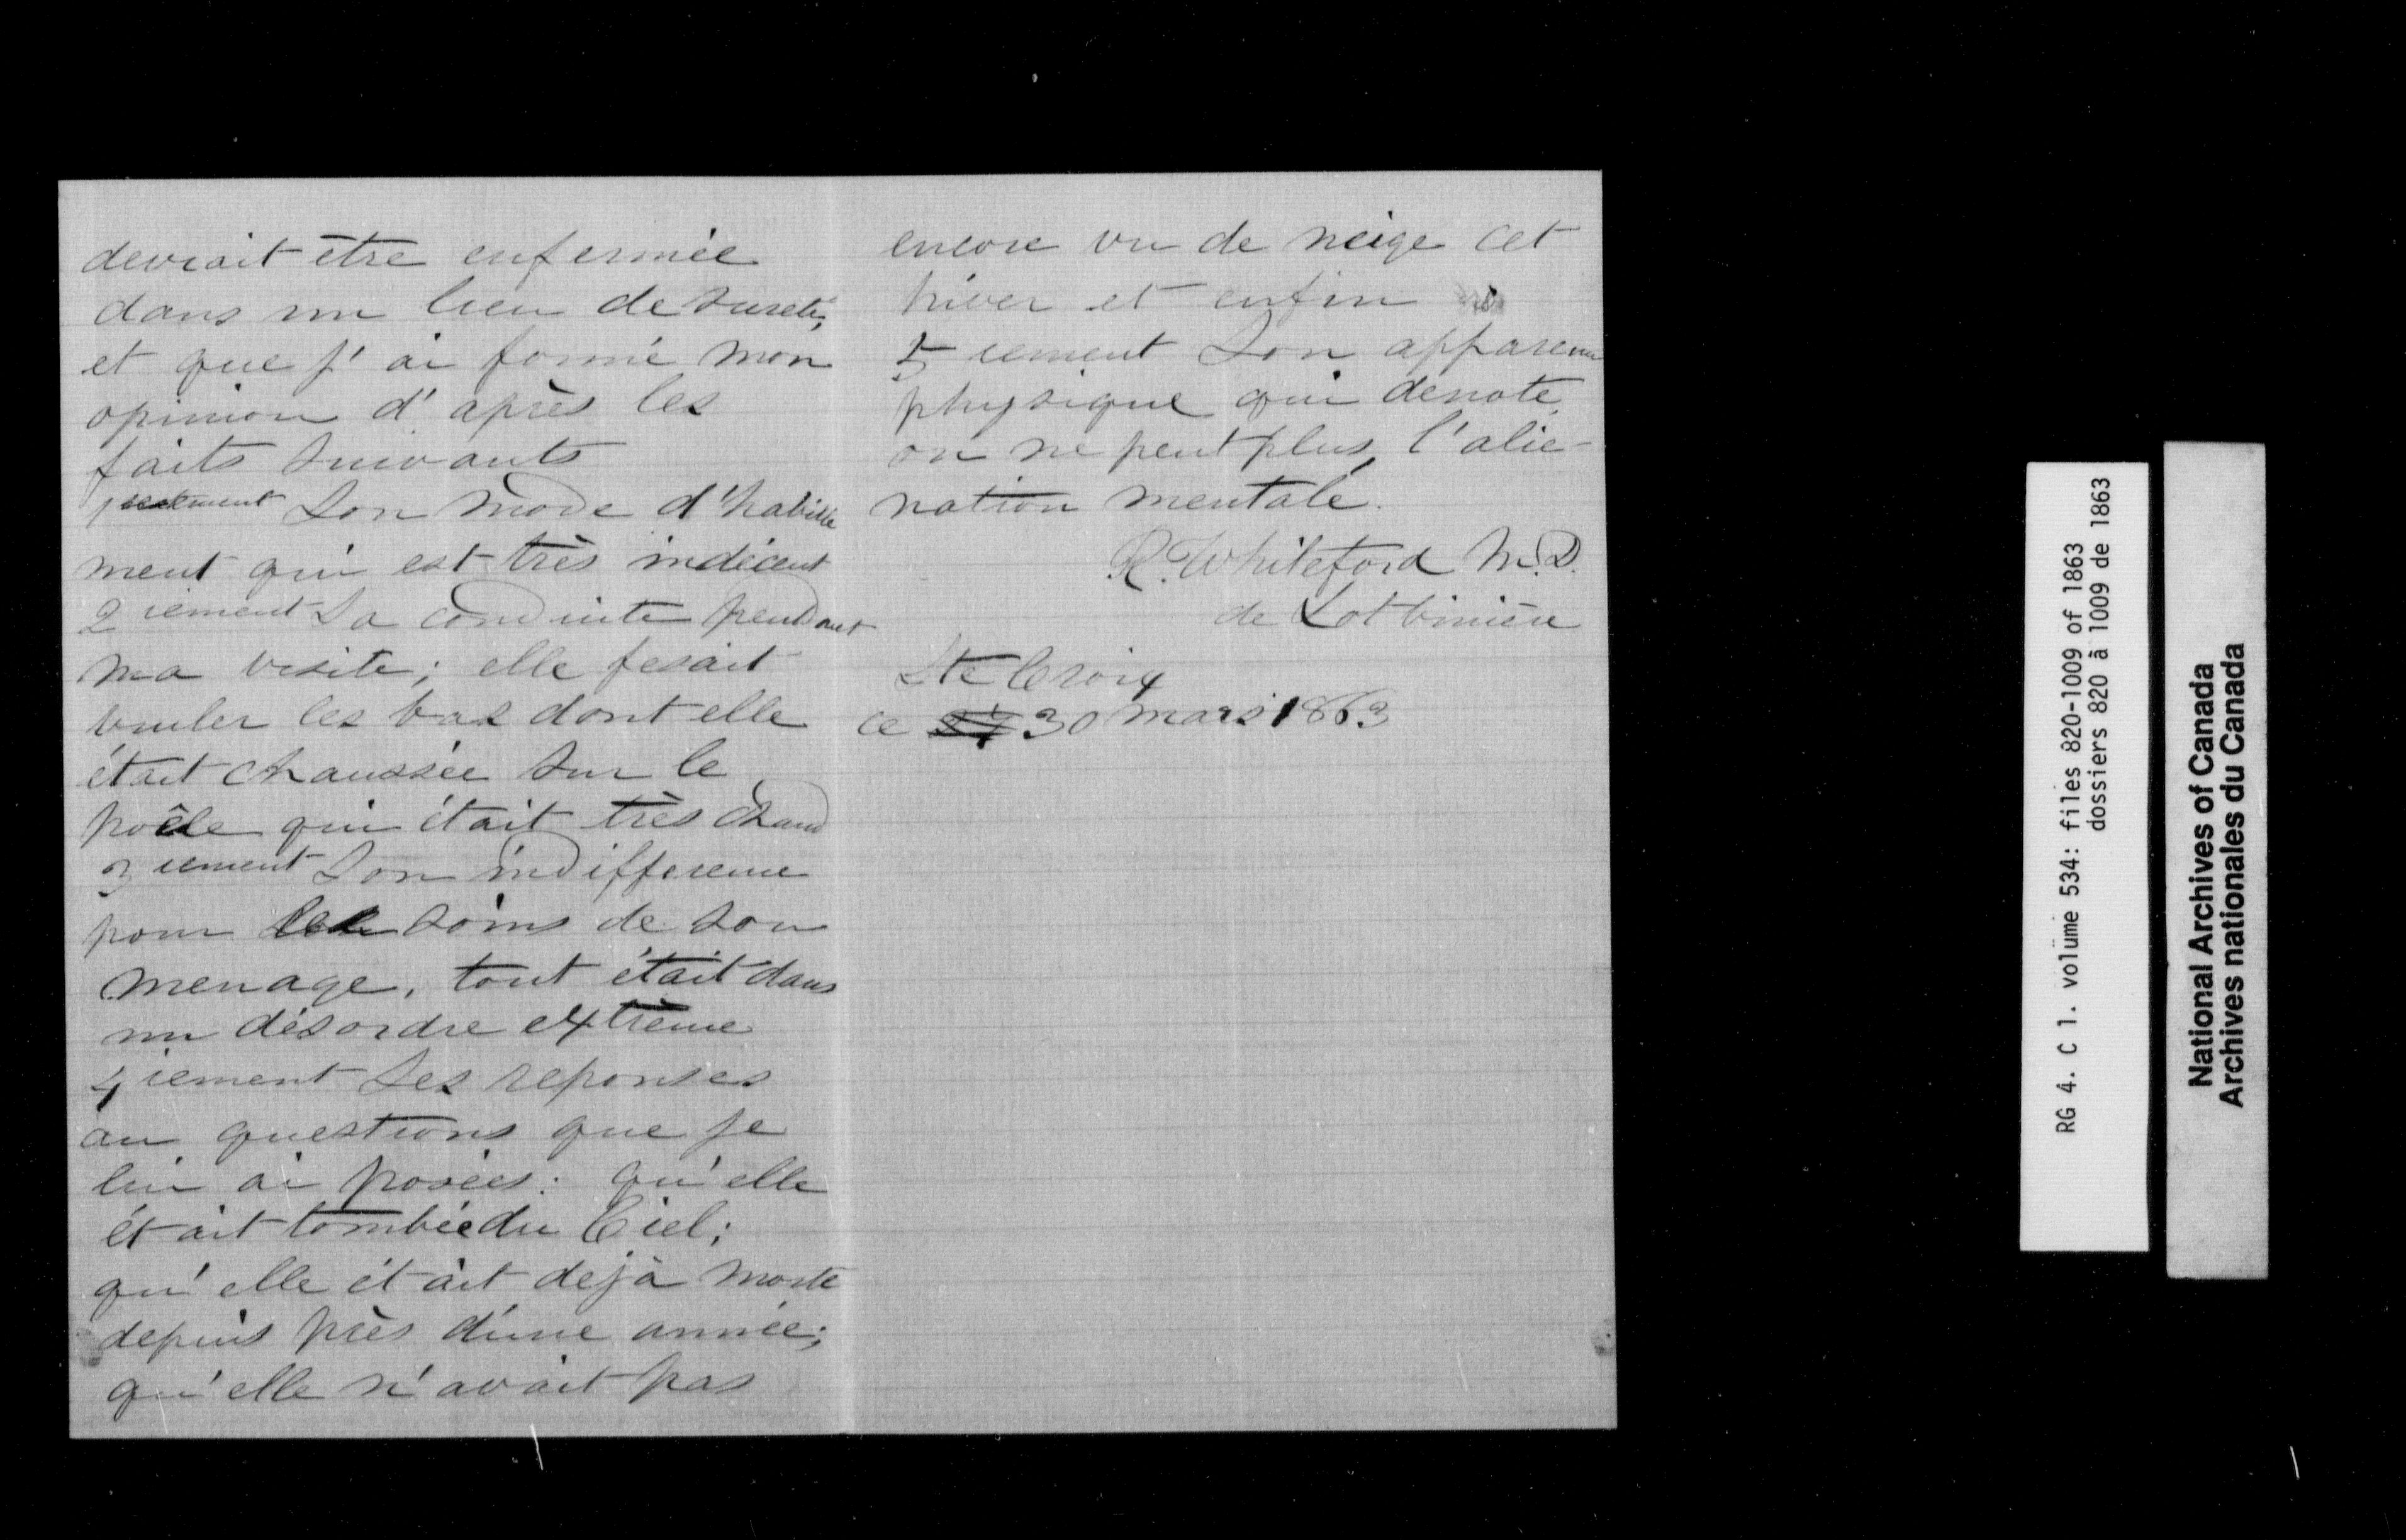 devrait être enfermée
dans un lieu de sureté,
et que j'ai formé mon
opinion d'après les
faits suivants
1 Son mode d'habille
ment qui est très indécent
2 iement Sa conduite pendant
ma visite; elle fesait
bruler les bas dont elle
était chaussée sur le
poêle qui était très chaud
3 iement Son indifference
pour les soins de son
menage, tout était dans
un désordre extrème
4 iement Ses reponses
au questions que je
lui ai posées: qu'elle
était tombée du Ciel;
qu'elle était dejà morte
depuis près d'une année;
qu'elle n'avait pas
encore vu de neige cet
hiver et enfin
5 iement Son apparence
physique qui denote,
on ne peut plus, l'alie-
nation mentale.
R. Whiteford M.D.
de Lotbinière
Ste Croix
ce 30 mars 1863
RG 4. C 1. volume 534: files 820-1009 of 1863
dossiers 820 à 1009 de 1863
National Archives of Canada
Archives nationales du Canada